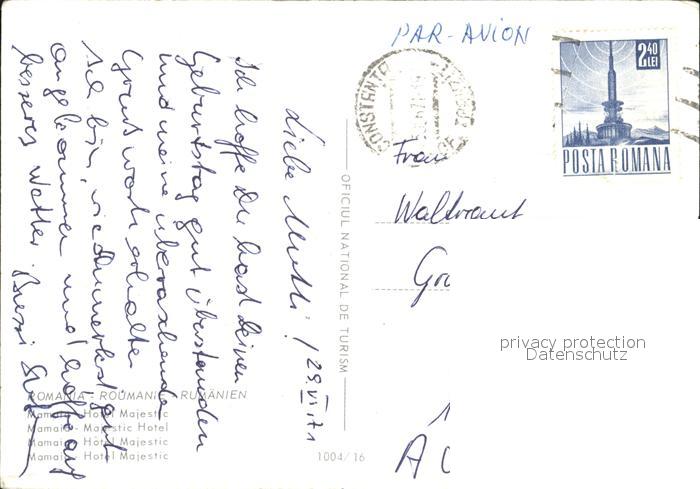 Liebe Mutti! 29.VI.71
Ich hoffe Du hast Deinen
Geburtstag gut überstanden
und meine überraschende
Grüße noch erhalten
Ich bin, wie immer gut
angekommen und hoffe auf
besseres Wetter. Bussi
ROMANIA - ROUMANIE - RUMÄNIEN
Mamaia - Hotel Majestic
Mamaia - Majestic Hotel
Mamaia - Hôtel Majestic
Mamaia - Hotel Majestic
1004/16
OFICIUL NATIONAL DE TURISM
PAR-AVION
CONSTANTA
2,40
LEI
POSTA ROMANA
Frau
Waltraut
privacy protection
Datenschutz